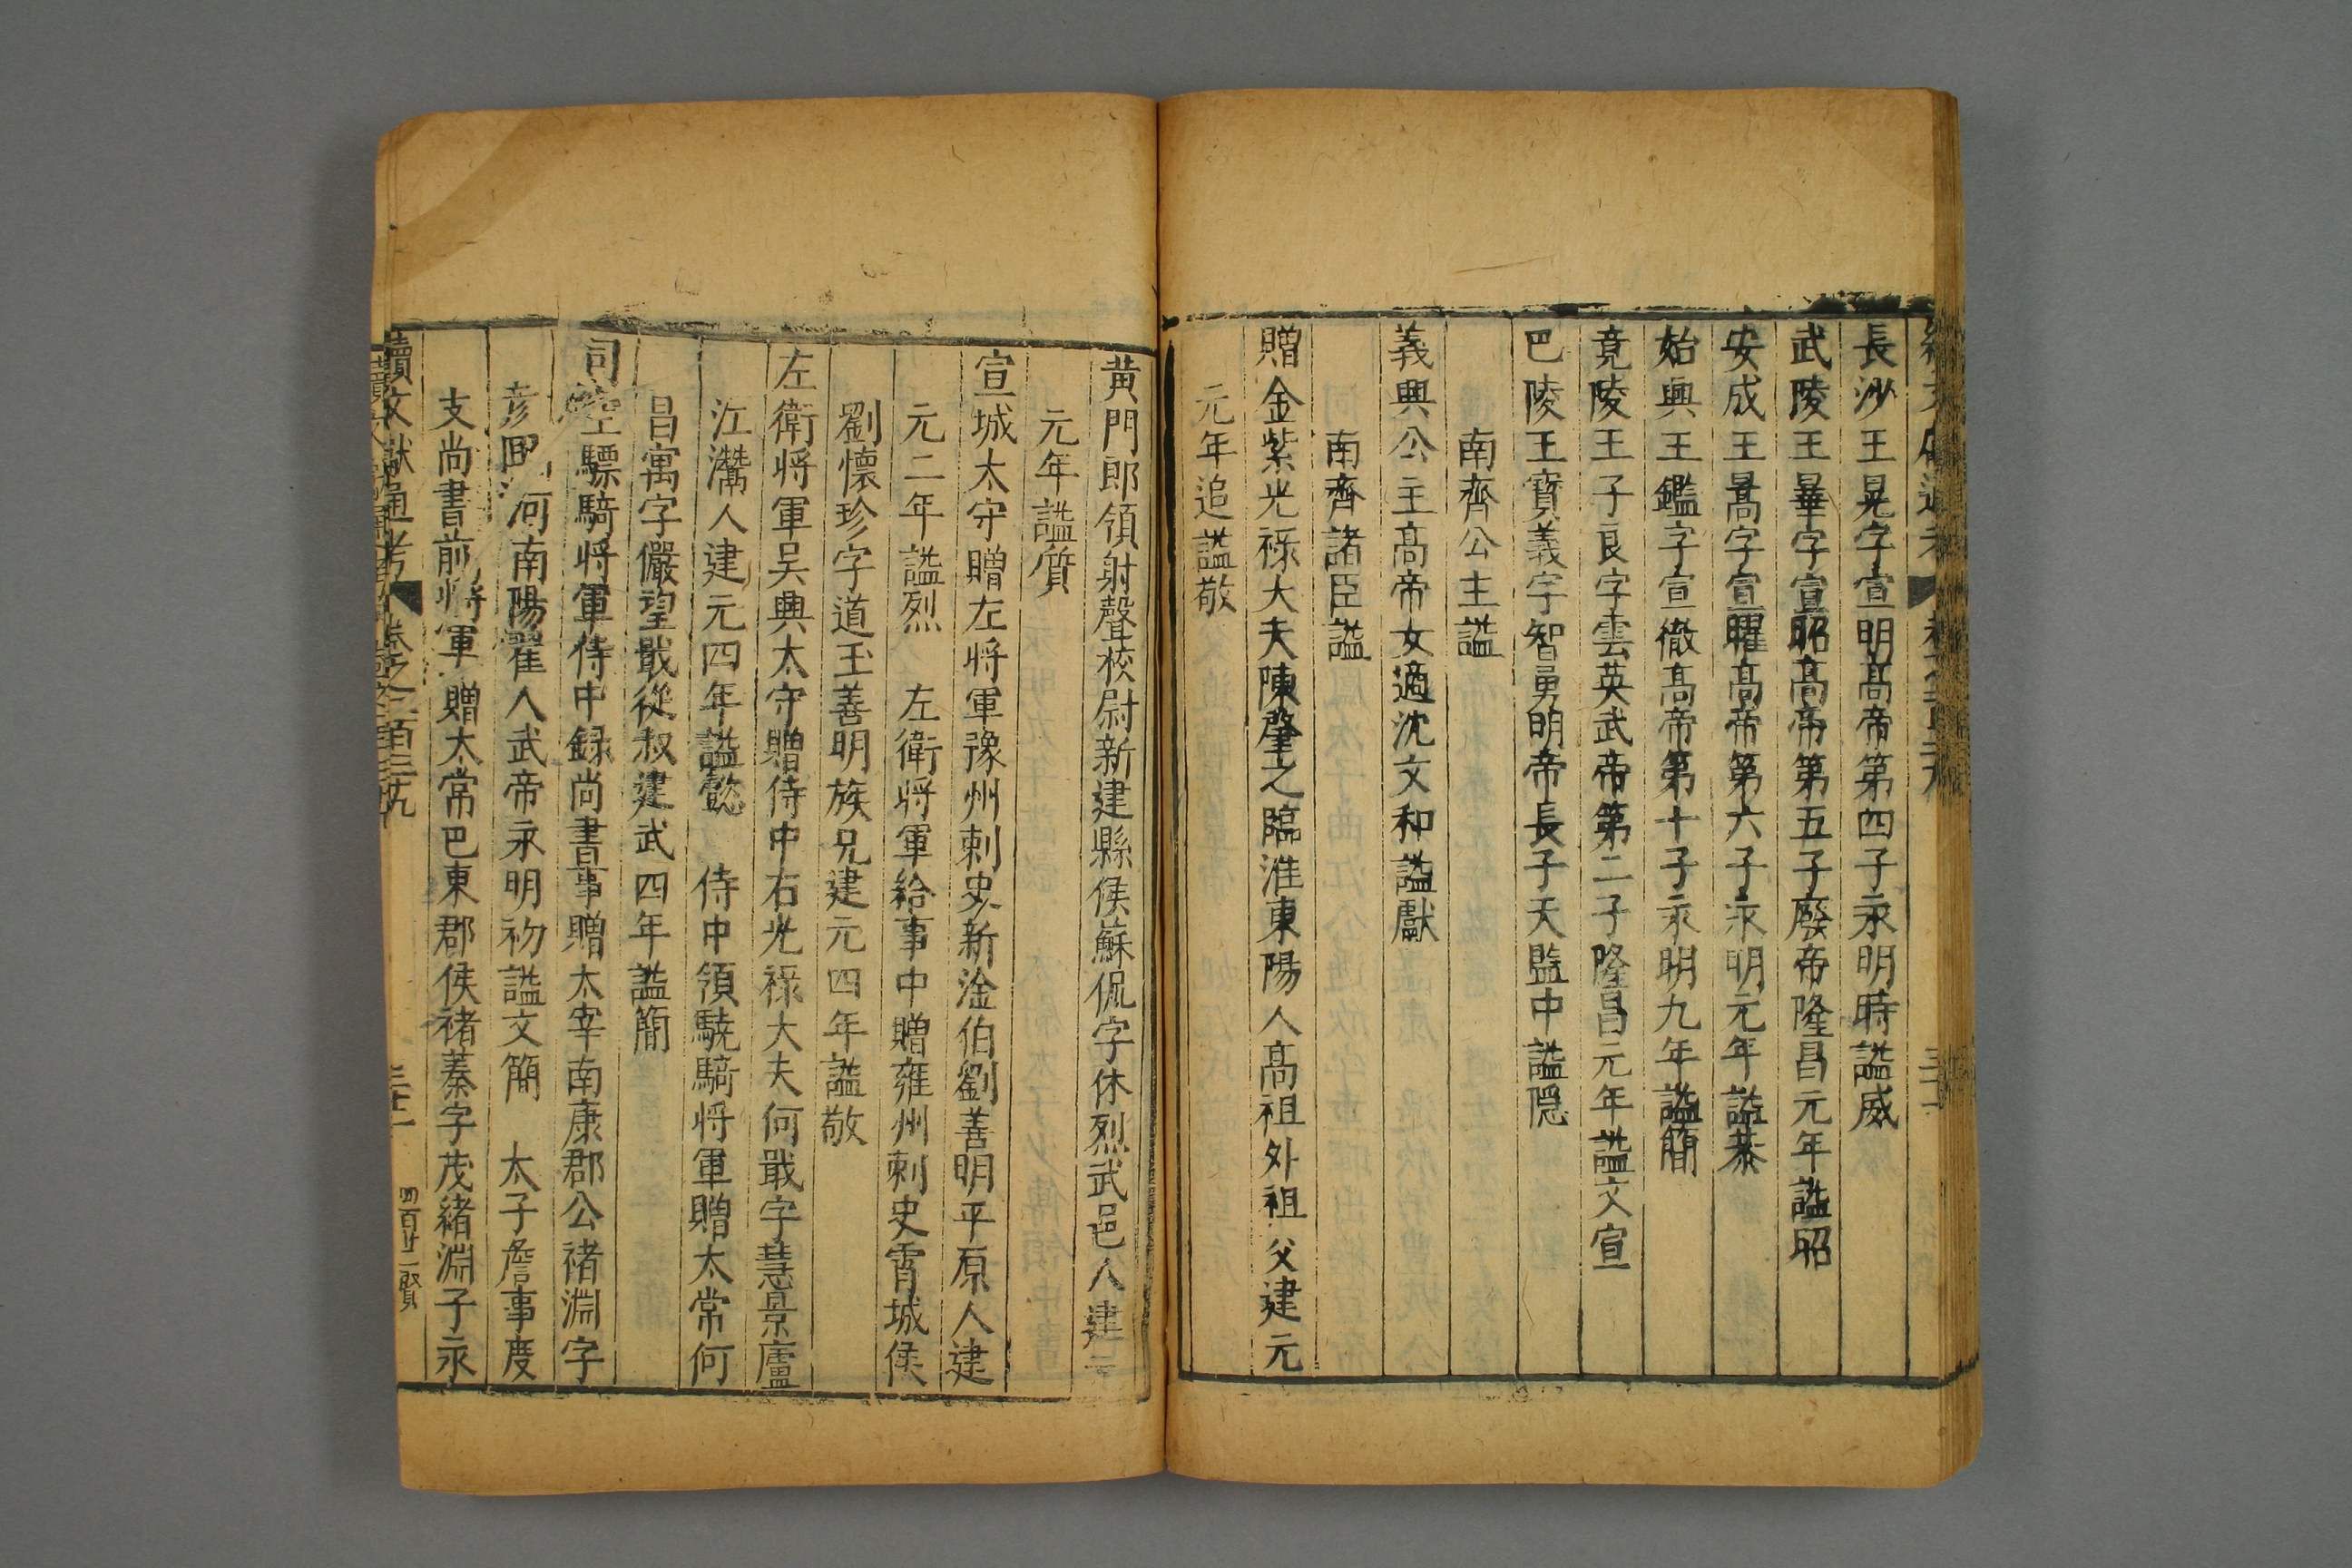 長沙王晃字宣明髙帝第四子永明時謚威
武陵王曅字宣昭髙帝第五子廢帝隆昌元年謚昭
安成王暠字宣曜髙帝第六子永明元年謚恭
始興王鑑字宣徹髙帝第十子永明九年謚簡
竟陵王子良字雲英武帝第二子隆昌元年謚文宣
巴陵王寶義字智勇明帝長子天監中謚隠
南齊公主謚
義興公主髙帝女適沈文和謚獻
南齊諸臣謚
贈金紫光祿大夫陳肇之臨淮東陽人髙祖外祖父建元
元年追謚敬
黃門郎領射聲校尉新建縣侯蘇侃字休烈武邑人建元
元年謚質
宣城太守贈左將軍豫州刺史新淦伯劉善明平原人建
元二年謚烈　左衛將軍給事中贈雍州刺史霄城侯
劉懷珍字道玉善明族兄建元四年謚敬
左衛將軍吳興太守贈侍中右光祿大夫何戢字慧景廬
江灊人建元四年謚懿　侍中領驍騎將軍贈太常何
昌㝢字儼望戢從叔建武四年謚簡
司空驃騎將軍侍中録尚書事贈太宰南康郡公褚淵字
彥回河南陽翟人武帝永明初謚文簡　太子詹事度
支尚書前將軍贈太常巴東郡侯褚蓁字茂緒淵子永
續文獻通考　卷之一百三十九　三十一　四百廿二　賢